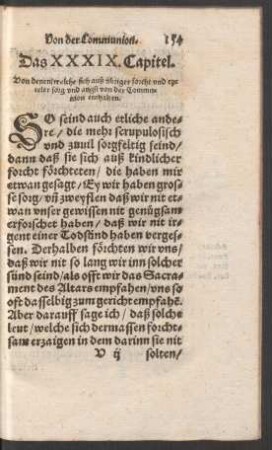 Von der Communion. 154
Das XXXIX. Capitel.
Von denen welche sich auß übriger forcht und ey-
teler sorg und angst von der Commu-
nion enthalten.
SO seind auch etliche ande-
re / die mehr scrupulosisch
und zuuil sorgfeltig seind /
dann daß sie sich auß kindlicher
forcht förchteten / die haben mir
etwan gesagt / Ey wir haben gros-
se sorg / uñ zweyflen daß wir nit et-
wan unser gewissen nit genůgsam
erforschet haben / daß wir nit ir-
gent einer Todtsünd haben verges-
sen. Derhalben förchten wir uns /
daß wir nit so lang wir inn solcher
sünd seind / als offt wir das Sacra-
ment des Altars empfahen / uns so
offt dasselbig zum gericht empfahẽ.
Aber darauff sage ich / daß solche
leut / welche sich dermassen forcht-
sam erzaigen in dem darinn sie nit
V ij solten /